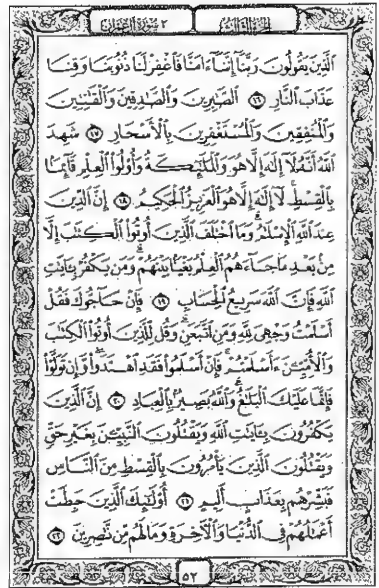 الجزء الثالث ٣ سورة آل عمران
ٱلَّذِينَ يَقُولُونَ رَبَّنَآ إِنَّنَآ ءَامَنَّا فَٱغْفِرْ لَنَا ذُنُوبَنَا وَقِنَا
عَذَابَ ٱلنَّارِ ١٦ ٱلصَّٰبِرِينَ وَٱلصَّٰدِقِينَ وَٱلْقَٰنِتِينَ
وَٱلْمُنفِقِينَ وَٱلْمُسْتَغْفِرِينَ بِٱلْأَسْحَارِ ١٧ شَهِدَ
ٱللَّهُ أَنَّهُۥ لَآ إِلَٰهَ إِلَّا هُوَ وَٱلْمَلَٰٓئِكَةُ وَأُو۟لُوا۟ ٱلْعِلْمِ قَآئِمًۢا
بِٱلْقِسْطِ لَآ إِلَٰهَ إِلَّا هُوَ ٱلْعَزِيزُ ٱلْحَكِيمُ ١٨ إِنَّ ٱلدِّينَ
عِندَ ٱللَّهِ ٱلْإِسْلَٰمُ وَمَا ٱخْتَلَفَ ٱلَّذِينَ أُوتُوا۟ ٱلْكِتَٰبَ إِلَّا
مِنۢ بَعْدِ مَا جَآءَهُمُ ٱلْعِلْمُ بَغْيًۢا بَيْنَهُمْ وَمَن يَكْفُرْ بِـَٔايَٰتِ
ٱللَّهِ فَإِنَّ ٱللَّهَ سَرِيعُ ٱلْحِسَابِ ١٩ فَإِنْ حَآجُّوكَ فَقُلْ
أَسْلَمْتُ وَجْهِىَ لِلَّهِ وَمَنِ ٱتَّبَعَنِ وَقُل لِّلَّذِينَ أُوتُوا۟ ٱلْكِتَٰبَ
وَٱلْأُمِّيِّـۧنَ ءَأَسْلَمْتُمْ فَإِنْ أَسْلَمُوا۟ فَقَدِ ٱهْتَدَوا۟ وَّإِن تَوَلَّوْا۟
فَإِنَّمَا عَلَيْكَ ٱلْبَلَٰغُ وَٱللَّهُ بَصِيرٌۢ بِٱلْعِبَادِ ٢٠ إِنَّ ٱلَّذِينَ
يَكْفُرُونَ بِـَٔايَٰتِ ٱللَّهِ وَيَقْتُلُونَ ٱلنَّبِيِّـۧنَ بِغَيْرِ حَقٍّ
وَيَقْتُلُونَ ٱلَّذِينَ يَأْمُرُونَ بِٱلْقِسْطِ مِنَ ٱلنَّاسِ
فَبَشِّرْهُم بِعَذَابٍ أَلِيمٍ ٢١ أُو۟لَٰٓئِكَ ٱلَّذِينَ حَبِطَتْ
أَعْمَٰلُهُمْ فِى ٱلدُّنْيَا وَٱلْءَاخِرَةِ وَمَا لَهُم مِّن نَّٰصِرِينَ ٢٢
٥٢